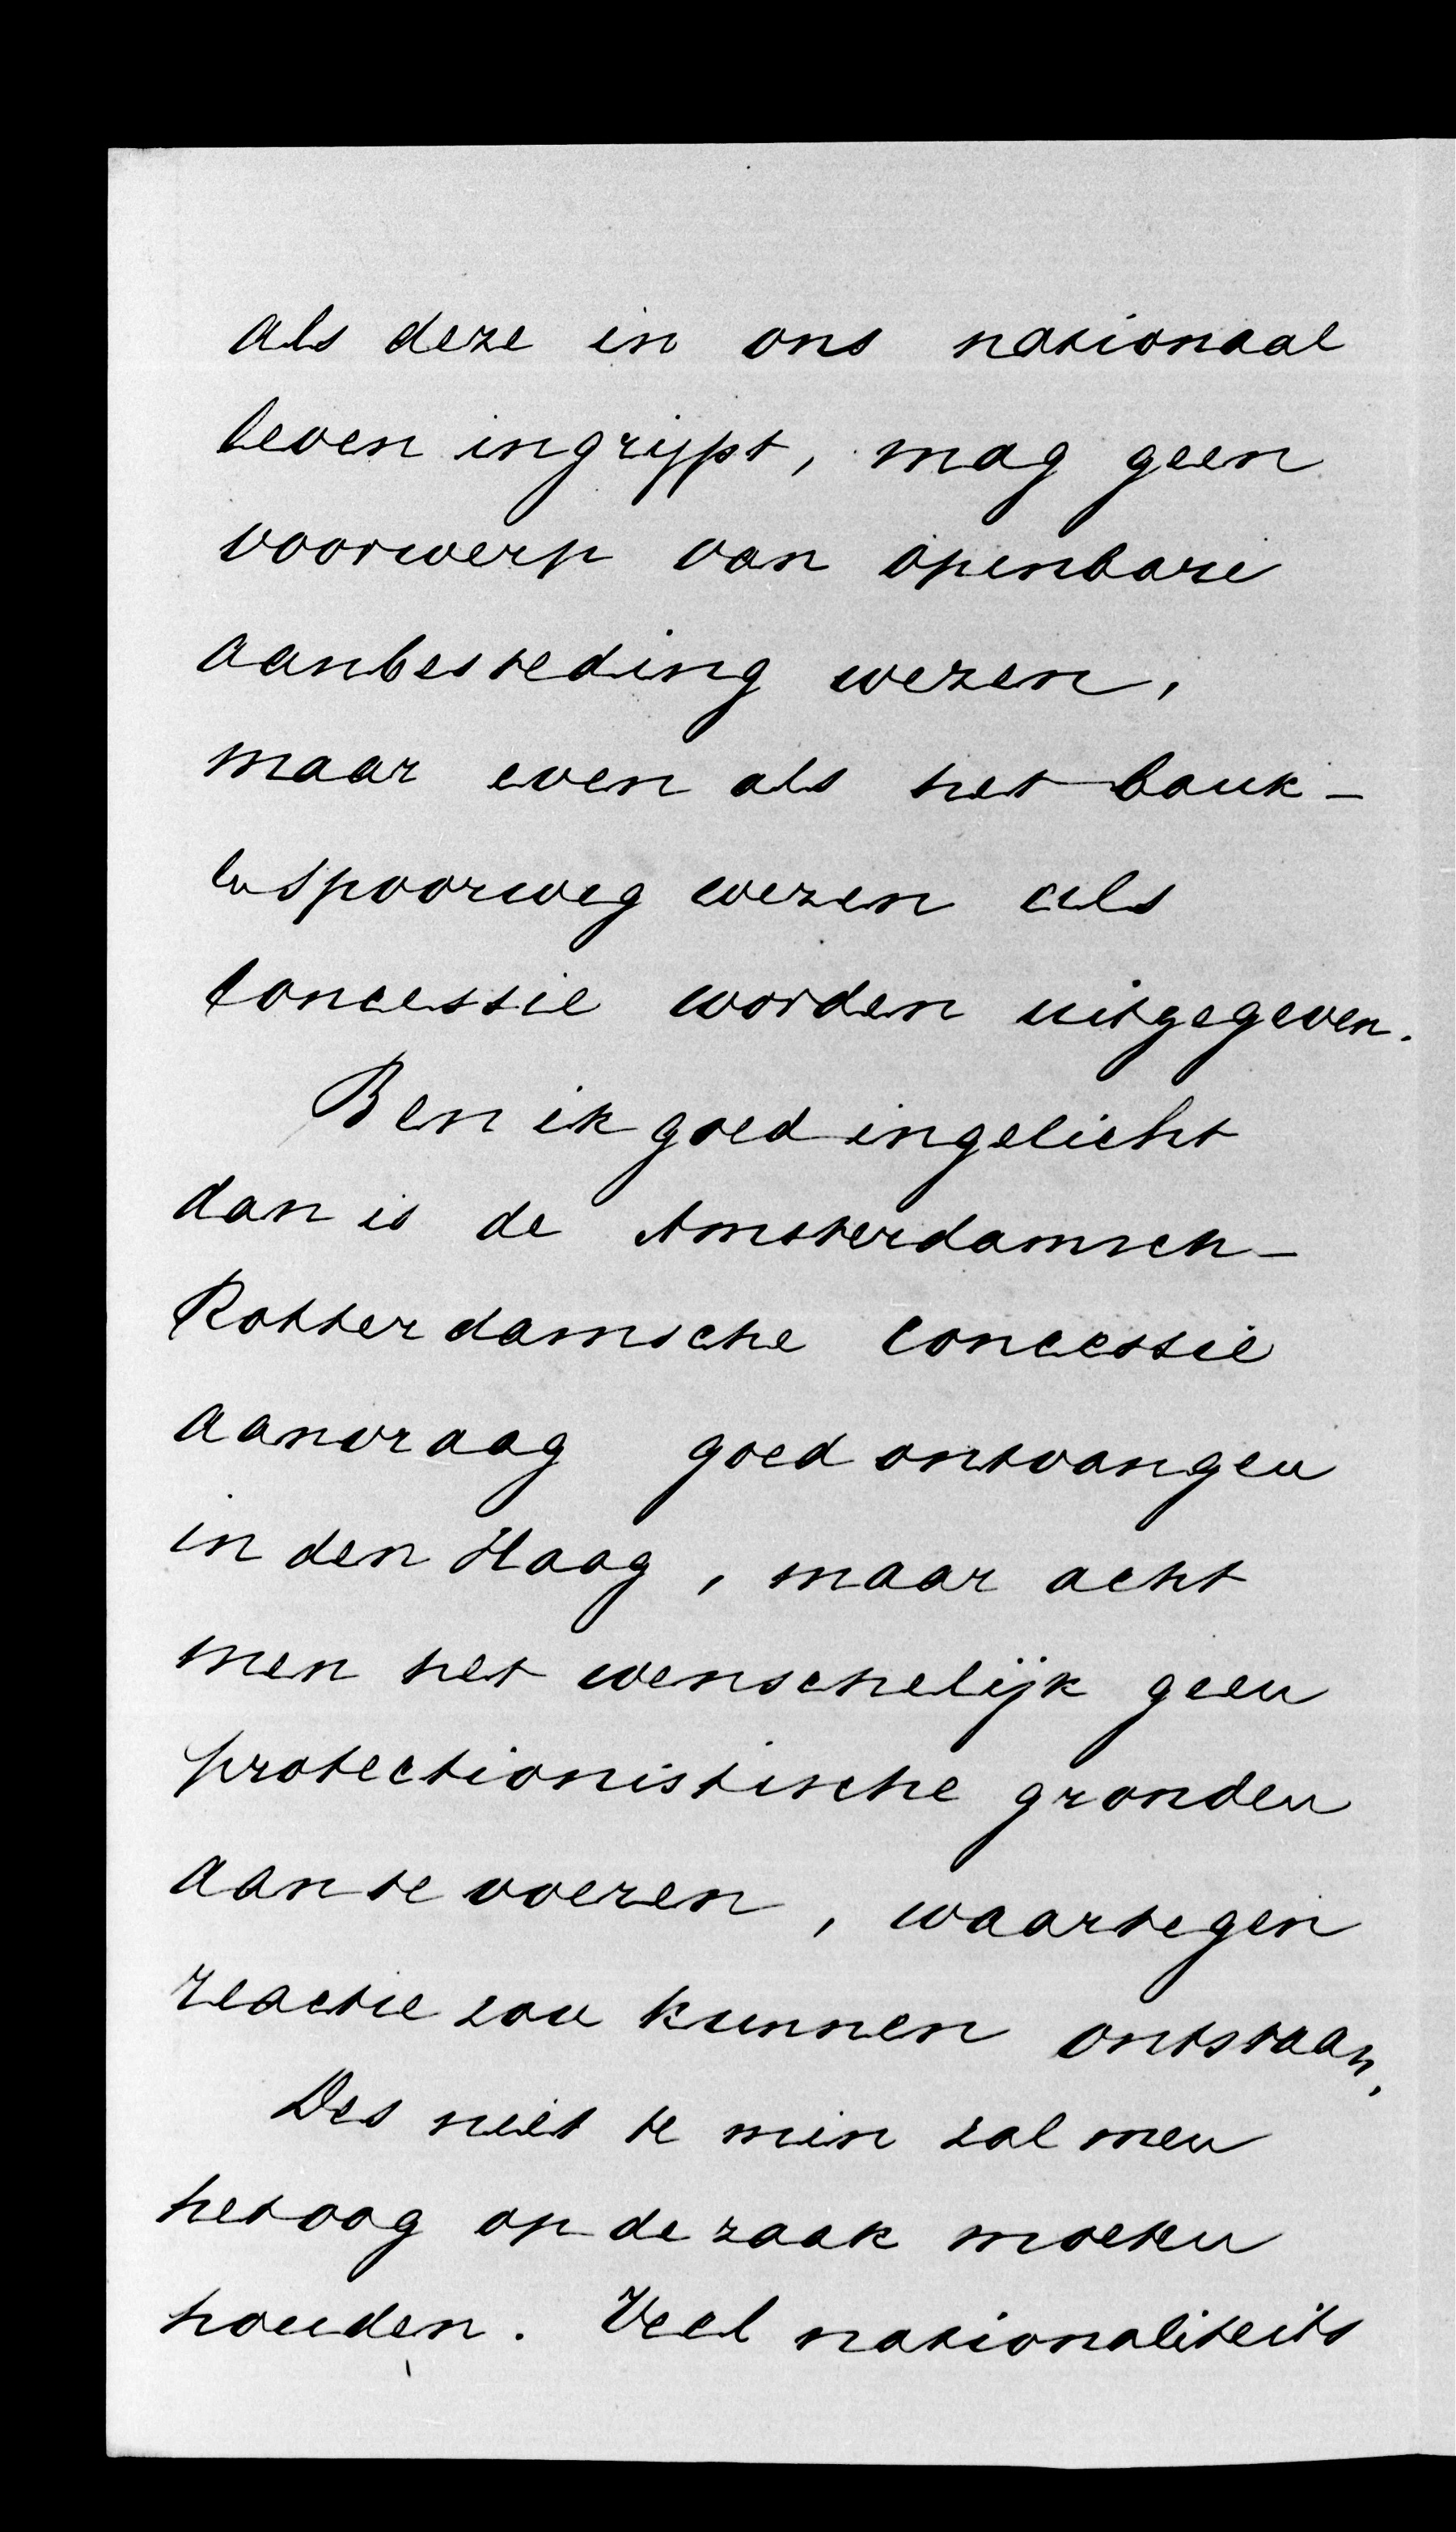 als deze in ons nationaal
leven ingrijpt, mag geen
voorwerp van openbare
aanbesteding wezen,
maar even als het bank-
en spoorweg wezen als
concessie worden uitgegeven.
Ben ik goed ingelicht
dan is de Amsterdamsch-
Rotterdamsche concessie
aanvraag goed ontvangen
in den Haag, maar acht
men het wenschelijk geen
protectionistische gronden
aan te voeren, waartegen
reactie zou kunnen ontstaan,
Des niet te min zal men
het oog op de zaak moeten
houden. Veel nationaliteits